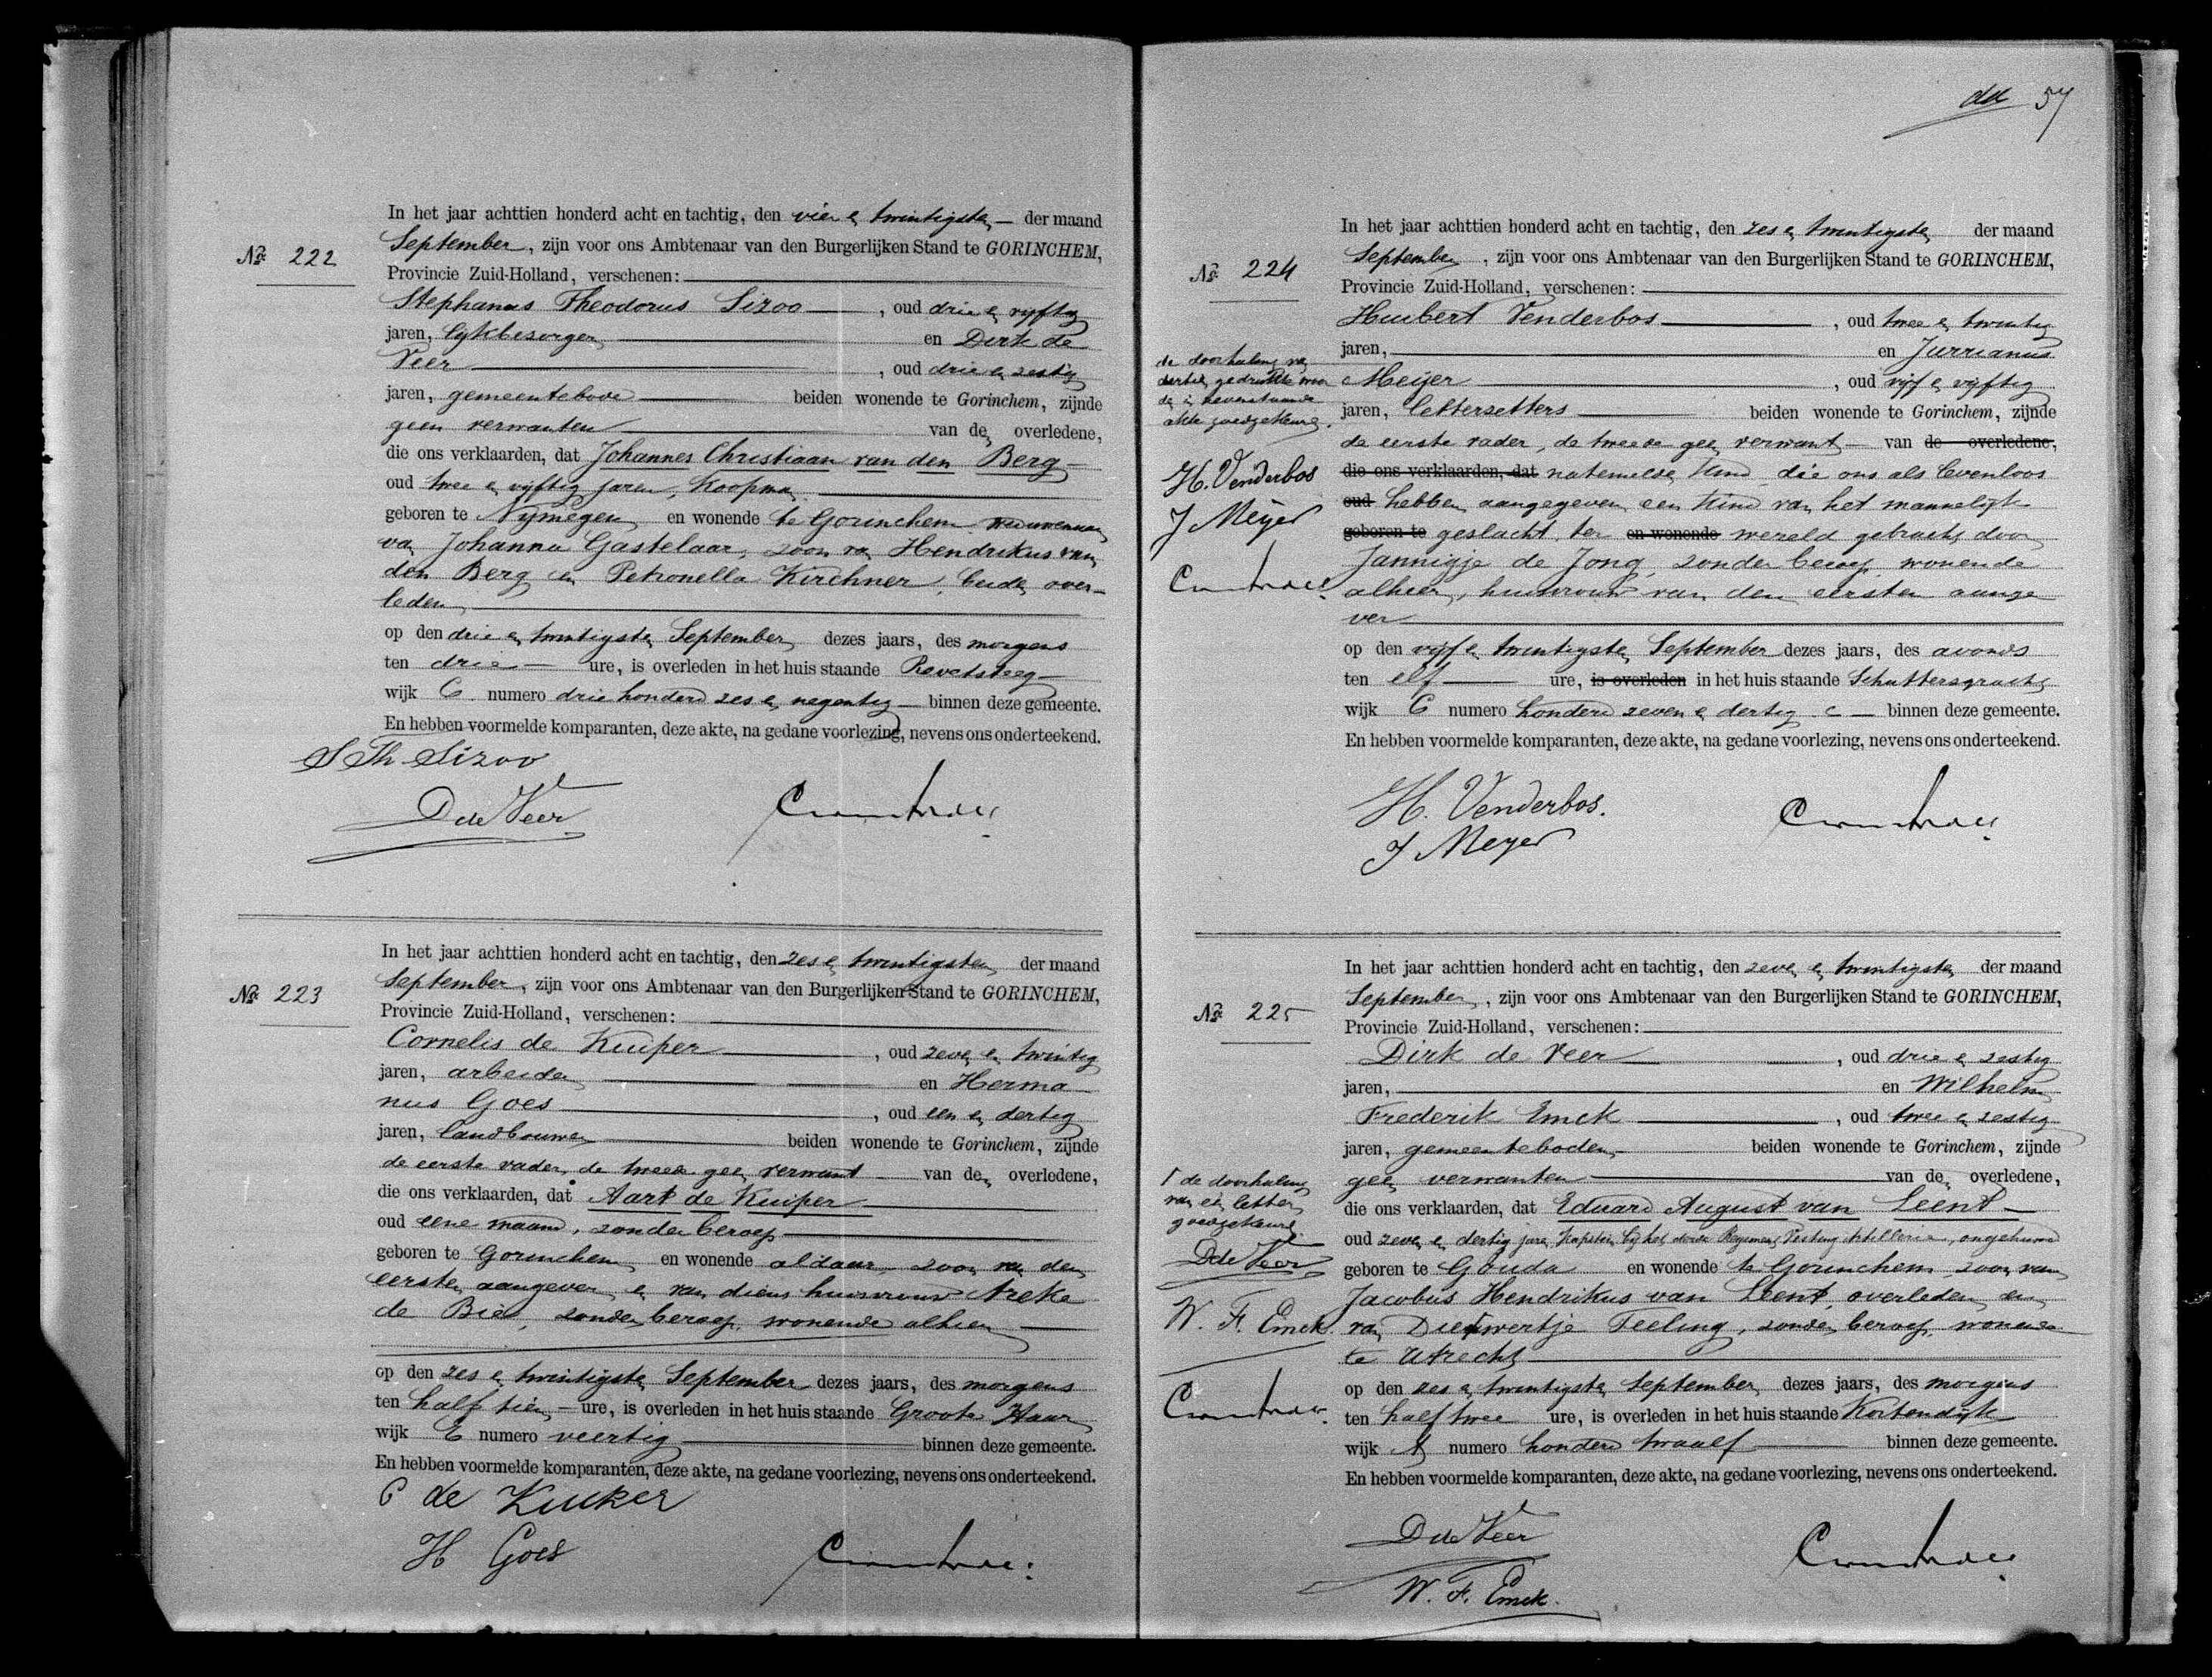 In het jaar achttien honderd acht en tachtig, den vier en twintigsten der maand
September, zijn voor ons Ambtenaar van den Burgerlijken Stand te GORINCHEM,
No. 222
Provincie Zuid-Holland, verschenen:
Stephanus Theodorus Sizoo, oud drie en vijftig
jaren, lijkbezorger en Dirk de
Veer, oud drie en zestig
jaren, gemeentebode beiden wonende te Gorinchem, zijnde
geen verwanten van den overledene,
die ons verklaarden, dat Johannes Christiaan van den Berg
oud twee en vijftig jaren, Koopman
geboren te Nijmegen en wonende te Gorinchem weduwenaar
van Johanna Gastelaar, zoon van Hendrikus van
den Berg en Petronella Kirchner, beiden over-
leden
op den drie en twintigsten September dezes jaars, des morgens
ten drie ure, is overleden in het huis staande Revetsteeg
wijk C numero drie honderd zes en negentig binnen deze gemeente.
En hebben voormelde komparanten, deze akte, na gedane voorlezing, nevens ons onderteekend.
S Th Sizoo
D de Veer
In het jaar achttien honderd acht en tachtig, den zes en twintigsten der maand
September, zijn voor ons Ambtenaar van den Burgerlijken Stand te GORINCHEM,
No. 223
Provincie Zuid-Holland, verschenen:
Cornelis de Kuiper, oud zeven en twintig
jaren, arbeider en Herma
nus Goes, oud een en dertig
jaren, landbouwer beiden wonende te Gorinchem, zijnde
de eerste vader, de tweede geen verwant van den overledene,
die ons verklaarden, dat Aart de Kuiper
oud eene maand, zonder beroep
geboren te Gorinchem en wonende aldaar, zoon van den
eersten aangever en van diens huisvrouw Areke
de Bie, zonder beroep, wonende alhier
op den zes en twintigsten September dezes jaars, des morgens
ten half tien ure, is overleden in het huis staande Groote Haar
wijk E numero veertig binnen deze gemeente.
En hebben voormelde komparanten, deze akte, na gedane voorlezing, nevens ons onderteekend.
C de Kuiker
H Goes
57
In het jaar achttien honderd acht en tachtig, den zes en twintigsten der maand
September, zijn voor ons Ambtenaar van den Burgerlijken Stand te GORINCHEM,
No. 224
Provincie Zuid-Holland, verschenen:
Huibert Venderbos, oud twee en twintig
jaren, en Jurrianus
Meijer, oud vijf en vijftig
jaren, letterzetters beiden wonende te Gorinchem, zijnde
de eerste vader, de tweede geen verwant van de overledene,
die ons verklaarden, dat natemelden kind, die ons als levenloos
oud hebben aangegeven een kind van het mannelijk
geboren te geslacht, ter en wonende wereld gebracht door
Jannigje de Jong, zonder beroep, wonende
alhier, huisvrouw van den eersten aange
ver
op den vijf en twintigsten September dezes jaars, des avonds
ten elf ure, is overleden in het huis staande Schuttersgracht
wijk C numero honderd zeven en dertig c binnen deze gemeente.
En hebben voormelde komparanten, deze akte, na gedane voorlezing, nevens ons onderteekend.
de doorhaling van
dertien gedrukte woor
den in nevenstaande
akte goedgekeurd.
H. Venderbos
J Meijer
H. Venderbos.
J Meyer
In het jaar achttien honderd acht en tachtig, den zeven en twintigsten der maand
September, zijn voor ons Ambtenaar van den Burgerlijken Stand te GORINCHEM,
No. 225
Provincie Zuid-Holland, verschenen:
Dirk de Veer, oud drie en zestig
jaren, en Wilhelm
Frederik Emck, oud twee en zestig
jaren, gemeenteboden beiden wonende te Gorinchem, zijnde
geen verwanten van den overledene,
die ons verklaarden, dat Eduard August van Leent
oud zeven en dertig jaren, Kapitein bij het derde Regiment Vesting Artillerie, ongehuwd
geboren te Gouda en wonende te Gorinchem, zoon van
Jacobus Hendrikus van Leent, overleden, en
van Dieuwertje Teeling, zonder beroep, wonende
te Utrecht
op den zes en twintigsten September dezes jaars, des morgens
ten half twee ure, is overleden in het huis staande Kortendijk
wijk A numero honderd twaalf binnen deze gemeente.
En hebben voormelde komparanten, deze akte, na gedane voorlezing, nevens ons onderteekend.
de doorhaling
van een letter
goedgekeurd
D de Veer
W. F. Emck.
D de Veer
W. F. Emck.